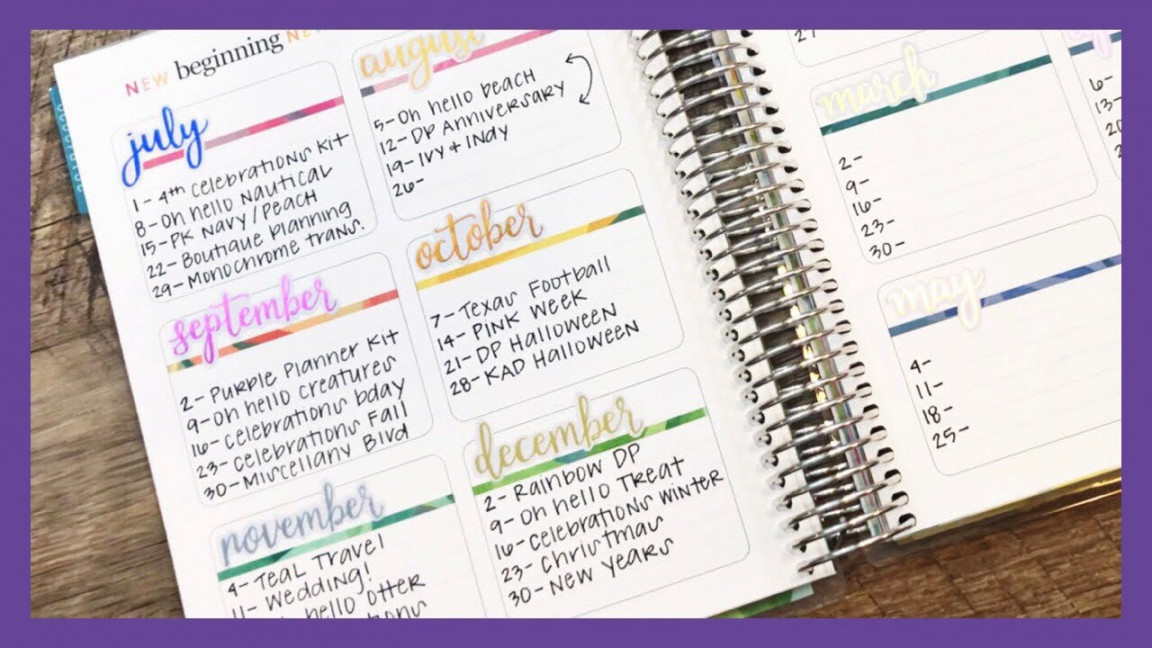 NEW beginning NE
july
1- 4th celebrations Kit
8- Oh hello Nautical
15- PK Navy/Peach
22- Boutique Planning
29- Monochrome trans.
august
5- Oh hello Beach
12- DP Anniversary
19- Ivy + Indy
26-
september
2- Purple Planner Kit
9- Oh hello creatures
16- celebrations bday
23- celebrations Fall
30- Miscellany Blvd
october
7- Texas Football
14- Pink Week
21- DP Halloween
28- KAD Halloween
november
4- Teal Travel
11- Wedding!
hello otter
december
2- Rainbow DP
9- Oh hello Treat
16- celebrations winter
23- Christmas
30- New Years
27
march
2-
9-
16-
23-
30-
may
4-
11-
18-
25-
6-
13-